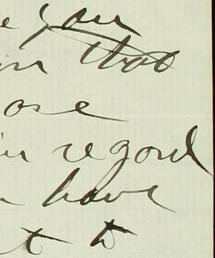 you
that
ose
in regard
have
t to